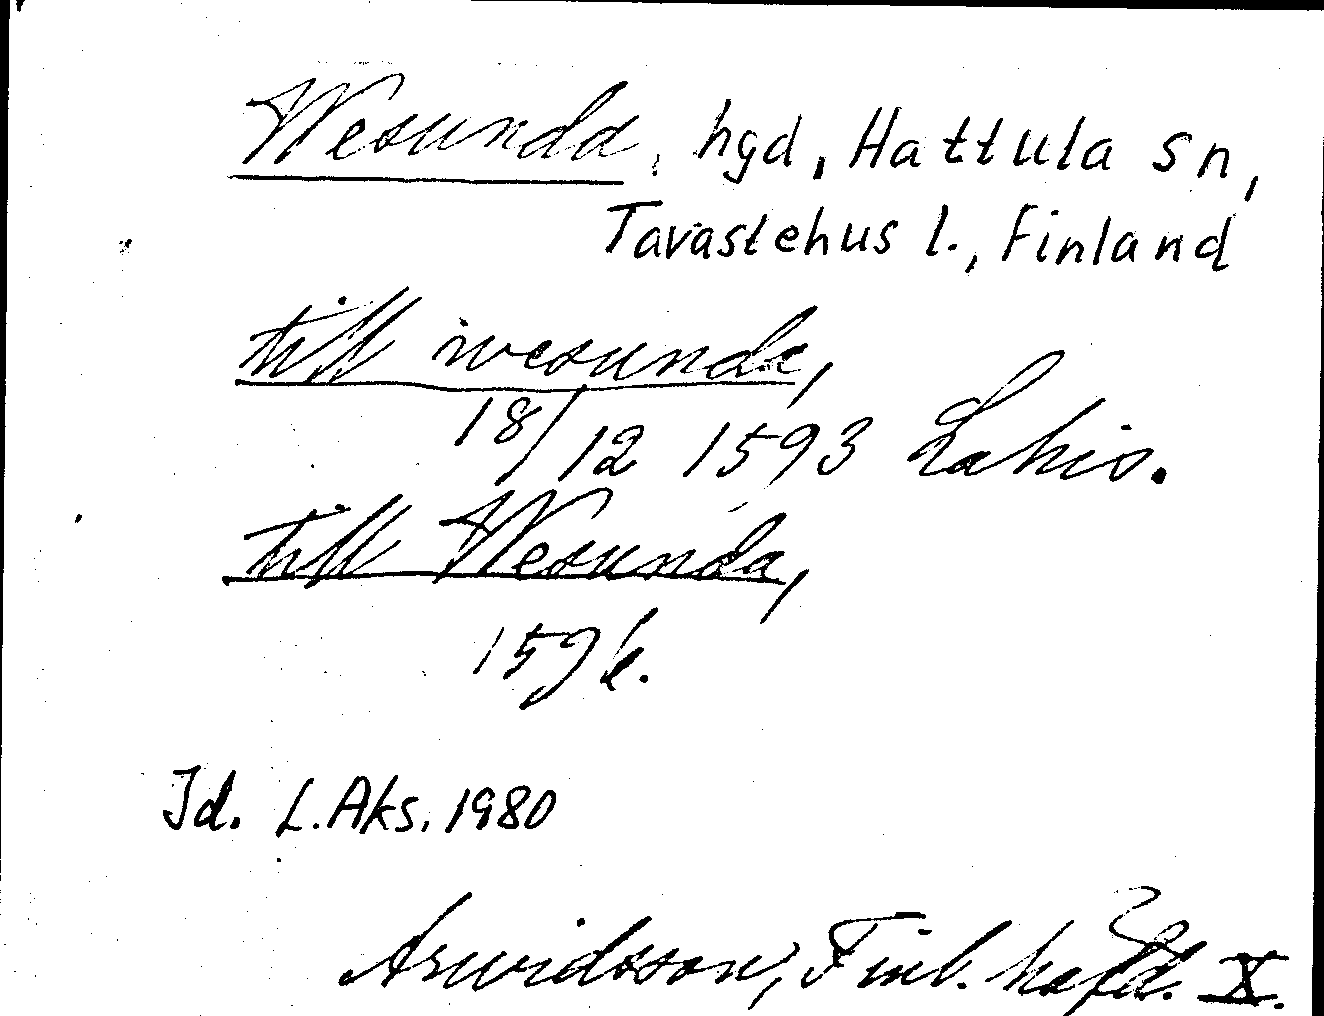 Wesunda, hgd, Hattula sn,
Tavastehus l., Finland
till wesunda,
18/12 1593 Lahis.
till Wesunda,
1596.
Id. L.Aks. 1980
Arwidsson, Finl. häfd. X.